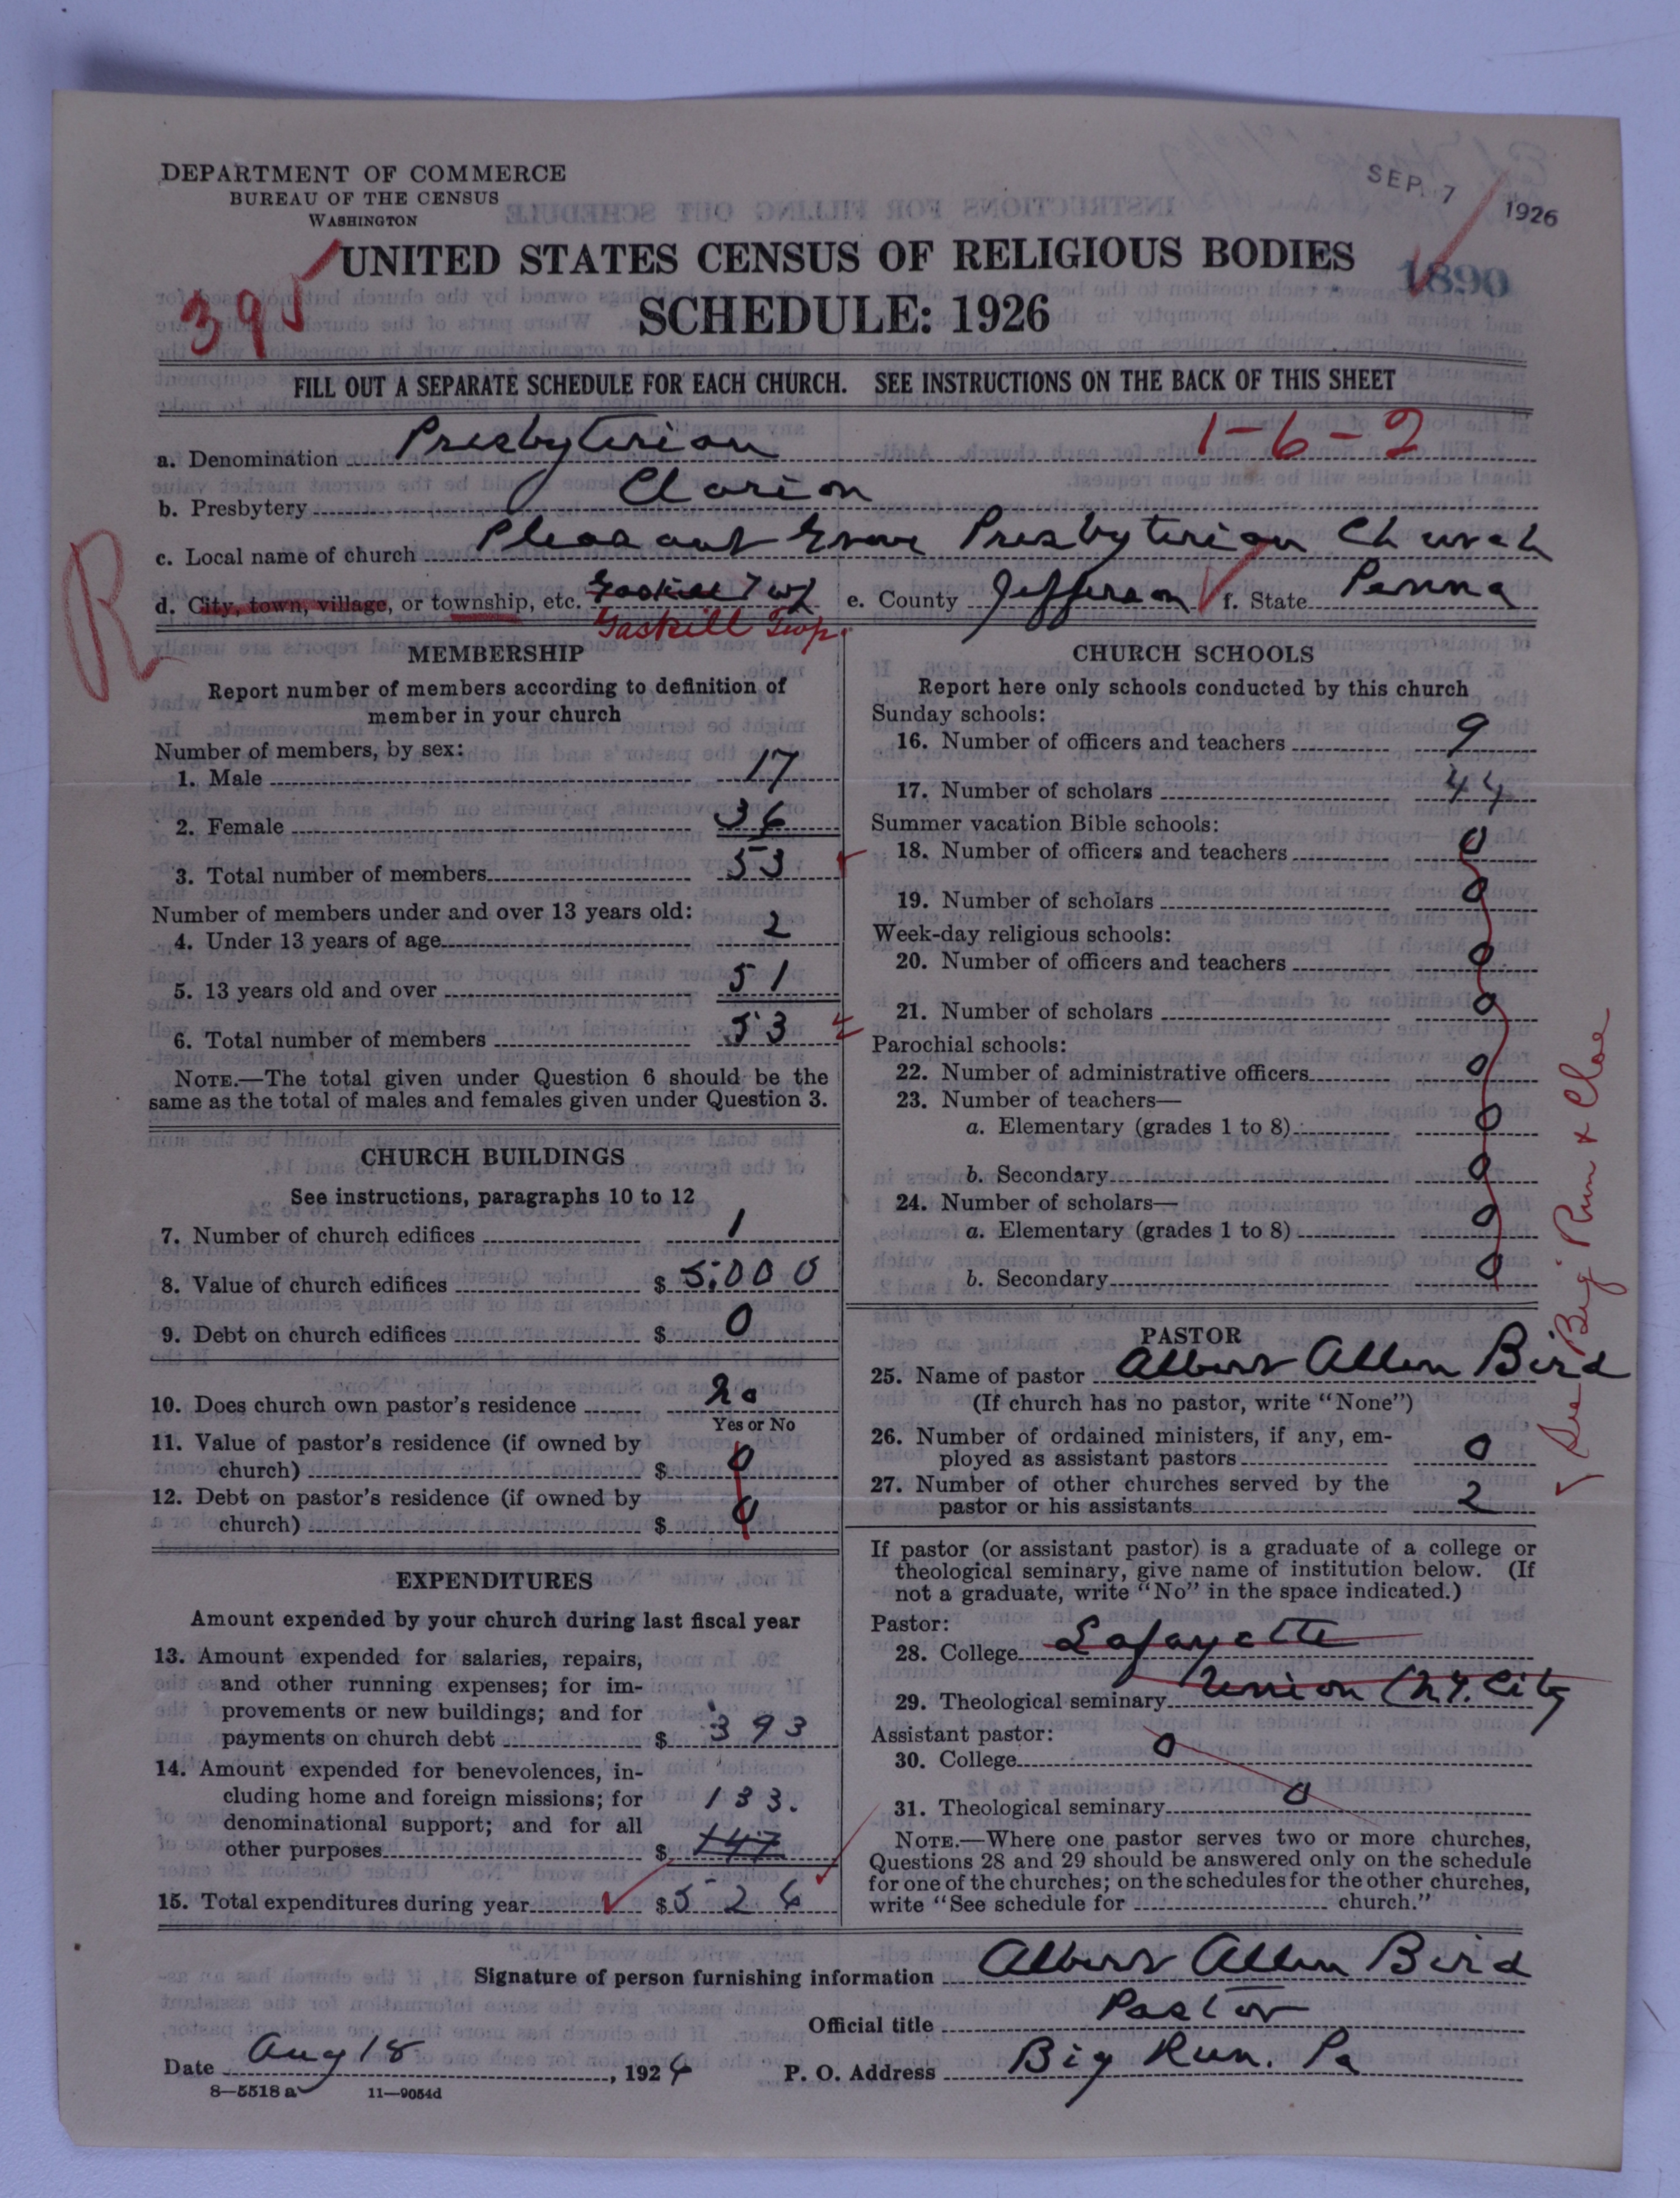 DEPARTMENT OF COMMERCE
BUREAU OF THE CENSUS
WASHINGTON
SEP. 7 1926
UNITED STATES CENSUS OF RELIGIOUS BODIES
1890
395
SCHEDULE: 1926
FILL OUT A SEPARATE SCHEDULE FOR EACH CHURCH. SEE INSTRUCTIONS ON THE BACK OF THIS SHEET
1-6-2
a. Denomination Presbyterian
b. Presbytery Clarion
c. Local name of church Pleasant Grove Presbyterian Church
d. City, town, village, or township, etc. Gaskill Twp e. County Jefferson f. State Penna
Gaskill Twp.
R
MEMBERSHIP
Report number of members according to definition of
member in your church
Number of members, by sex:
1. Male 17
2. Female 36
3. Total number of members 53
Number of members under and over 13 years old:
4. Under 13 years of age 2
5. 13 years old and over 51
6. Total number of members 53
NOTE.—The total given under Question 6 should be the
same as the total of males and females given under Question 3.
CHURCH BUILDINGS
See instructions, paragraphs 10 to 12
7. Number of church edifices 1
8. Value of church edifices $ 5,000
9. Debt on church edifices $ 0
10. Does church own pastor's residence No
Yes or No
11. Value of pastor's residence (if owned by
church) $ 0
12. Debt on pastor's residence (if owned by
church) $ 0
EXPENDITURES
Amount expended by your church during last fiscal year
13. Amount expended for salaries, repairs,
and other running expenses; for im-
provements or new buildings; and for
payments on church debt $ 393
14. Amount expended for benevolences, in-
cluding home and foreign missions; for 133.
denominational support; and for all
other purposes $ 147
15. Total expenditures during year $ 526
CHURCH SCHOOLS
Report here only schools conducted by this church
Sunday schools:
16. Number of officers and teachers 9
17. Number of scholars 44
Summer vacation Bible schools:
18. Number of officers and teachers 0
19. Number of scholars 0
Week-day religious schools:
20. Number of officers and teachers 0
21. Number of scholars 0
Parochial schools:
22. Number of administrative officers 0
23. Number of teachers—
a. Elementary (grades 1 to 8) 0
b. Secondary 0
24. Number of scholars—
a. Elementary (grades 1 to 8) 0
b. Secondary 0
PASTOR
25. Name of pastor Albert Allen Bird
(If church has no pastor, write "None")
26. Number of ordained ministers, if any, em-
ployed as assistant pastors 0
27. Number of other churches served by the
pastor or his assistants 2
See Big Run & Cloe
If pastor (or assistant pastor) is a graduate of a college or
theological seminary, give name of institution below. (If
not a graduate, write "No" in the space indicated.)
Pastor:
28. College Lafayette
29. Theological seminary Union (N.Y. City
Assistant pastor:
30. College 0
31. Theological seminary 0
NOTE.—Where one pastor serves two or more churches,
Questions 28 and 29 should be answered only on the schedule
for one of the churches; on the schedules for the other churches,
write "See schedule for church."
Signature of person furnishing information Albert Allen Bird
Official title Pastor
Date Aug 18, 1926 P. O. Address Big Run. Pa
8—5518 a 11—9054d